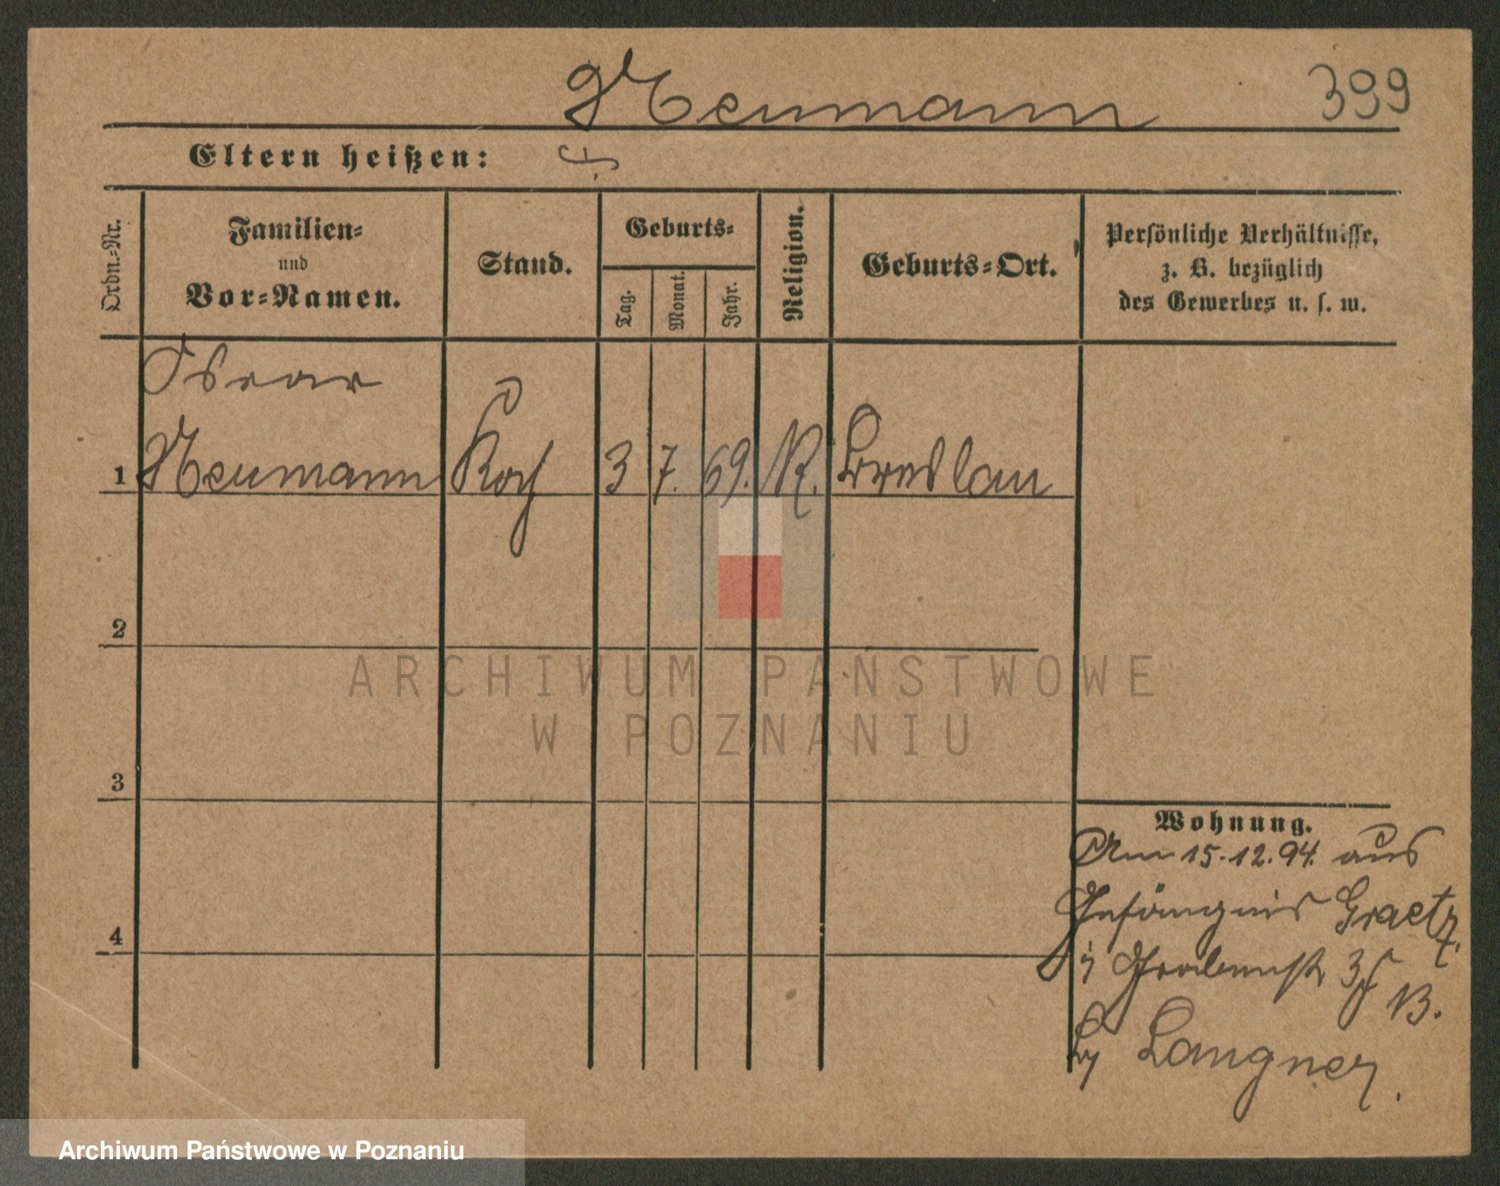 Neumann
399
Eltern heißen:
Ordn.-Nr.
Familien-
und
Vor-Namen.
Stand.
Geburts-
Tag.
Monat.
Jahr.
Religion.
Geburts-Ort.
Persönliche Verhältnisse,
z. B. bezüglich
des Gewerbes u. s. w.
Oscar
1 Neumann Koch 3 7. 69. K. Breslau
2
3
4
Wohnung.
Am 15.12.94. aus
Gefängnis Graetz.
Grabenstr 3
B.
Langner.
ARCHIWUM PAŃSTWOWE
W POZNANIU
Archiwum Państwowe w Poznaniu